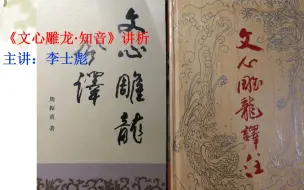 《文心雕龙·知音》讲析
主讲：李士彪
文心雕龍
今譯
周振甫 著
文心雕龍譯注